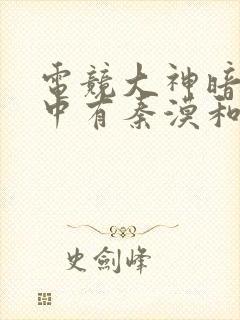 電競大神暗
中有秦漠和
史劍峰